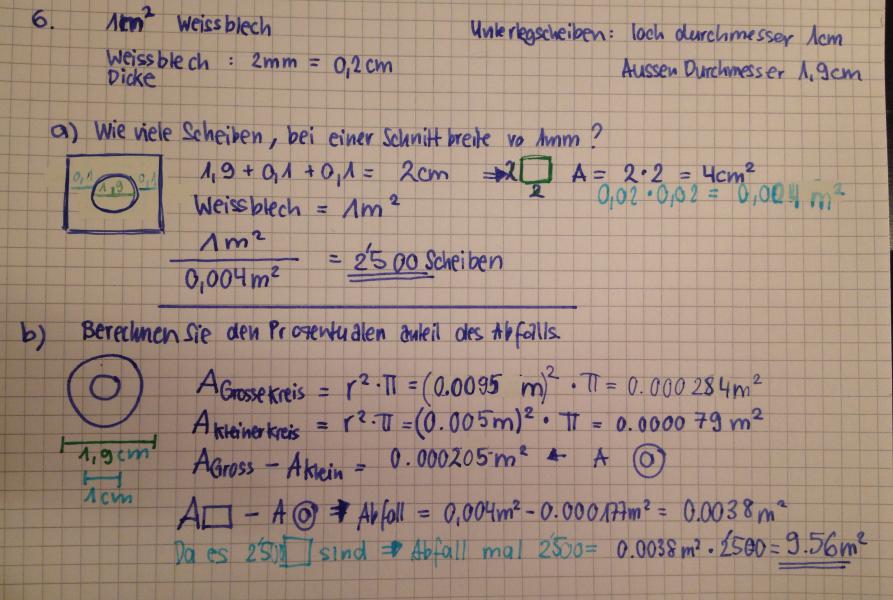 6. 1m² Weissblech
Unterlegscheiben: loch durchmesser 1cm
Weissblech : 2mm = 0,2cm
Dicke
Aussen Durchmesser 1,9cm
a) Wie viele Scheiben, bei einer Schnittbreite vo 1mm?
0,1 1,9 0,1
1,9 + 0,1 + 0,1 = 2cm ⇒ 2 □ A = 2·2 = 4cm²
2
0,02·0,02 = 0,004 m²
Weissblech = 1m²
1m²
0,004m²
= 2'500 Scheiben
b) Berechnen Sie den Prozentualen anteil des Abfalls.
A Grosse Kreis = r²·π = (0.0095 m)²·π = 0.000284m²
A kleiner kreis = r²·π = (0.005m)²·π = 0.000079 m²
1,9cm
A Gross - A klein = 0.000205m² ← A ◎
1cm
A□ - A◎ → Abfall = 0,004m² - 0.000177m² = 0.0038m²
Da es 2'500 □ sind ⇒ Abfall mal 2'500 = 0.0038m²·2500 = 9.56m²